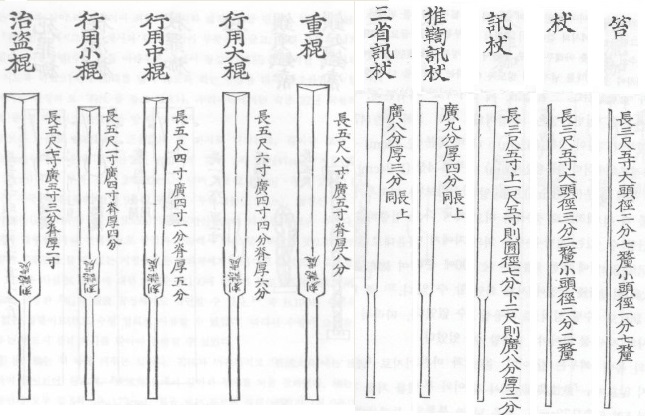 笞
長三尺五寸大頭徑二分七釐小頭徑一分七釐
杖
長三尺五寸大頭徑三分二釐小頭徑二分二釐
訊杖
長三尺五寸上一尺五寸則圓徑七分下二尺則廣八分厚二分
推鞫訊杖
廣九分厚四分長上同
三省訊杖
廣八分厚三分長上同
重棍
長五尺八寸廣五寸脊厚八分
行用大棍
長五尺六寸廣四寸四分脊厚六分
行用中棍
長五尺四寸廣四寸一分脊厚五分
行用小棍
長五尺一寸廣四寸脊厚四分
治盜棍
長五尺七寸廣五寸三分脊厚一寸